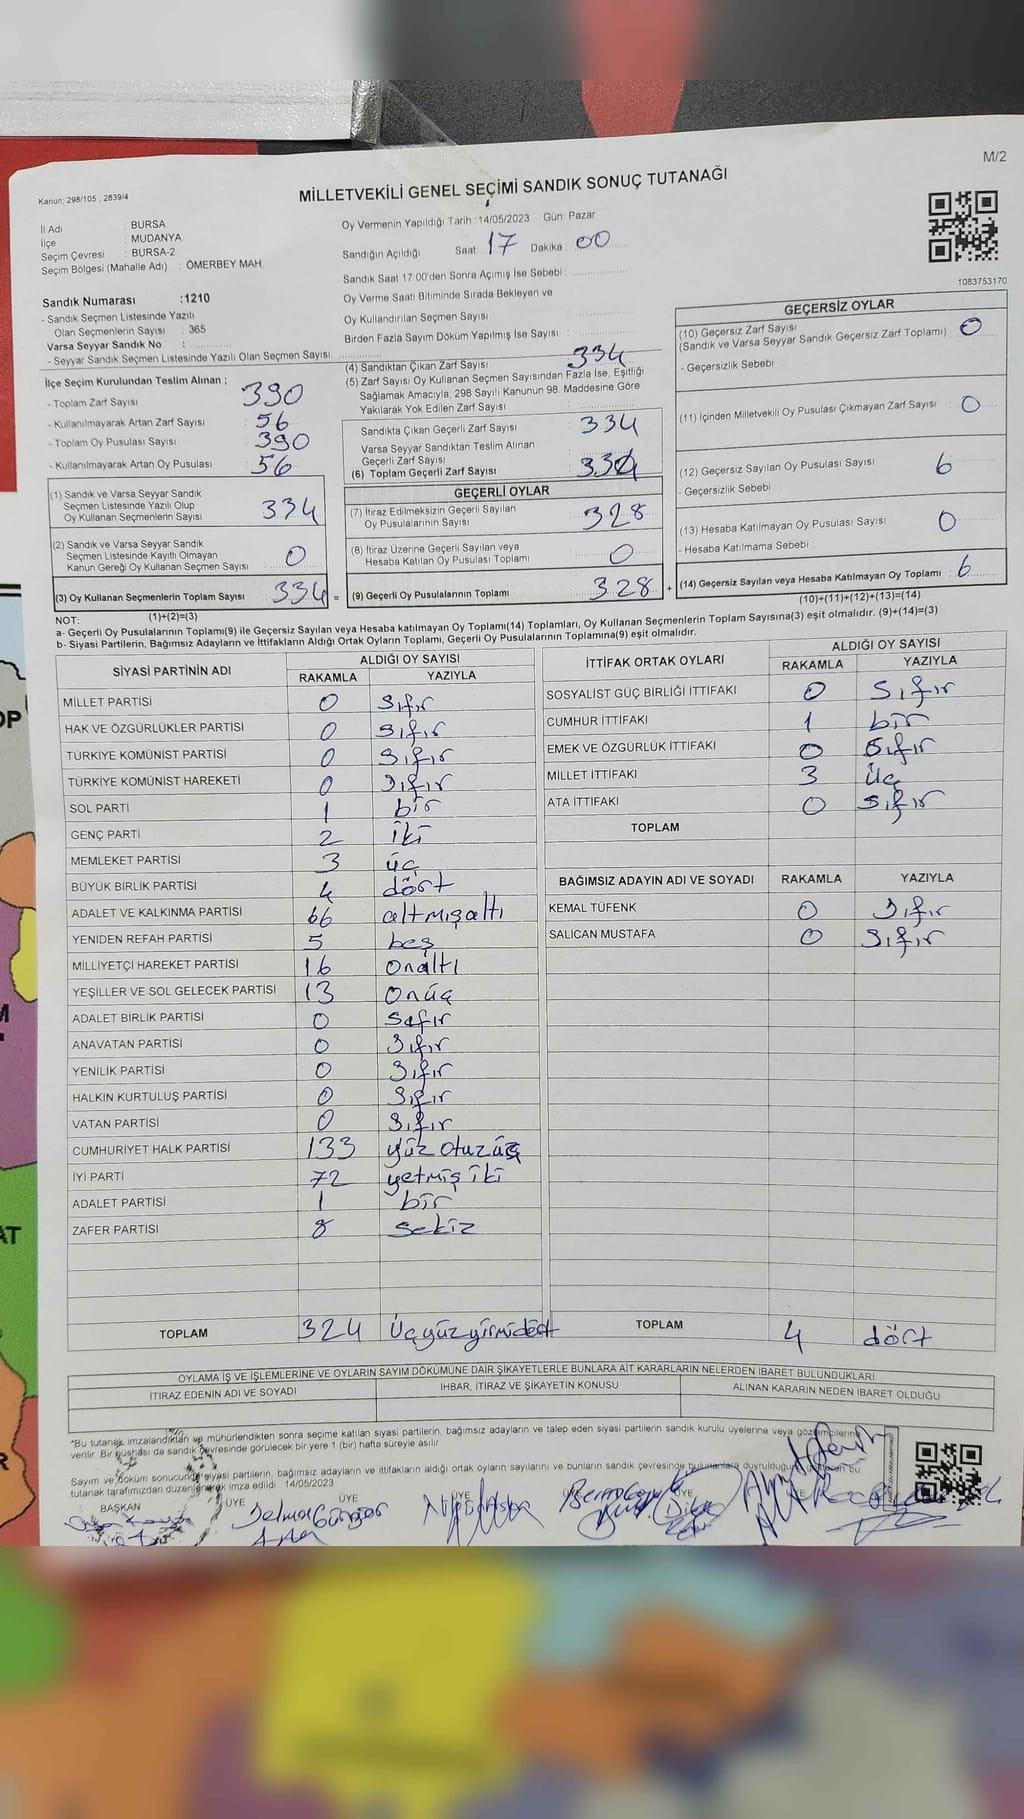 M/2
Kanun; 298/105 , 2839/4
MİLLETVEKİLİ GENEL SEÇİMİ SANDIK SONUÇ TUTANAĞI
İl Adı : BURSA
İlçe : MUDANYA
Seçim Çevresi : BURSA-2
Seçim Bölgesi (Mahalle Adı) : ÖMERBEY MAH.
Oy Vermenin Yapıldığı Tarih :14/05/2023 Gün: Pazar
Sandığın Açıldığı Saat: 17 Dakika : 00
Sandık Saat 17:00'den Sonra Açımış İse Sebebi :
Oy Verme Saati Bitiminde Sırada Bekleyen ve
Oy Kullandırılan Seçmen Sayısı :
Birden Fazla Sayım Döküm Yapılmış İse Sayısı :
1083753170
Sandık Numarası :1210
- Sandık Seçmen Listesinde Yazılı
Olan Seçmenlerin Sayısı : 365
Varsa Seyyar Sandık No :
- Seyyar Sandık Seçmen Listesinde Yazılı Olan Seçmen Sayısı
İlçe Seçim Kurulundan Teslim Alınan ;
- Toplam Zarf Sayısı 390
- Kullanılmayarak Artan Zarf Sayısı 56
- Toplam Oy Pusulası Sayısı 390
- Kullanılmayarak Artan Oy Pusulası 56
(1) Sandık ve Varsa Seyyar Sandık
Seçmen Listesinde Yazılı Olup
Oy Kullanan Seçmenlerin Sayısı 334
(2) Sandık ve Varsa Seyyar Sandık
Seçmen Listesinde Kayıtlı Olmayan
Kanun Gereği Oy Kullanan Seçmen Sayısı 0
(3) Oy Kullanan Seçmenlerin Toplam Sayısı 334 =
(1)+(2)=(3)
(4) Sandıktan Çıkan Zarf Sayısı 334
(5) Zarf Sayısı Oy Kullanan Seçmen Sayısından Fazla İse, Eşitliği
Sağlamak Amacıyla; 298 Sayılı Kanunun 98. Maddesine Göre
Yakılarak Yok Edilen Zarf Sayısı :
Sandıkta Çıkan Geçerli Zarf Sayısı 334
Varsa Seyyar Sandıktan Teslim Alınan
Geçerli Zarf Sayısı
(6) Toplam Geçerli Zarf Sayısı 334
GEÇERLİ OYLAR
(7) İtiraz Edilmeksizin Geçerli Sayılan
Oy Pusulalarının Sayısı 328
(8) İtiraz Üzerine Geçerli Sayılan veya
Hesaba Katılan Oy Pusulası Toplamı 0
(9) Geçerli Oy Pusulalarının Toplamı 328 +
GEÇERSİZ OYLAR
(10) Geçersiz Zarf Sayısı
(Sandık ve Varsa Seyyar Sandık Geçersiz Zarf Toplamı) 0
- Geçersizlik Sebebi
(11) İçinden Milletvekili Oy Pusulası Çıkmayan Zarf Sayısı 0
(12) Geçersiz Sayılan Oy Pusulası Sayısı 6
- Geçersizlik Sebebi :
(13) Hesaba Katılmayan Oy Pusulası Sayısı 0
- Hesaba Katılmama Sebebi :
(14) Geçersiz Sayılan veya Hesaba Katılmayan Oy Toplamı : 6
(10)+(11)+(12)+(13)=(14)
NOT:
a- Geçerli Oy Pusulalarının Toplamı(9) ile Geçersiz Sayılan veya Hesaba katılmayan Oy Toplamı(14) Toplamları, Oy Kullanan Seçmenlerin Toplam Sayısına(3) eşit olmalıdır. (9)+(14)=(3)
b- Siyasi Partilerin, Bağımsız Adayların ve İttifakların Aldığı Ortak Oyların Toplamı, Geçerli Oy Pusulalarının Toplamına(9) eşit olmalıdır.
SİYASİ PARTİNİN ADI ALDIĞI OY SAYISI
RAKAMLA YAZIYLA
MİLLET PARTİSİ 0 sıfır
HAK VE ÖZGÜRLÜKLER PARTİSİ 0 sıfır
TÜRKİYE KOMÜNİST PARTİSİ 0 sıfır
TÜRKİYE KOMÜNİST HAREKETİ 0 sıfır
SOL PARTİ 1 bir
GENÇ PARTİ 2 iki
MEMLEKET PARTİSİ 3 üç
BÜYÜK BİRLİK PARTİSİ 4 dört
ADALET VE KALKINMA PARTİSİ 66 altmışaltı
YENİDEN REFAH PARTİSİ 5 beş
MİLLİYETÇİ HAREKET PARTİSİ 16 onaltı
YEŞİLLER VE SOL GELECEK PARTİSİ 13 onüç
ADALET BİRLİK PARTİSİ 0 safır
ANAVATAN PARTİSİ 0 sıfır
YENİLİK PARTİSİ 0 sıfır
HALKIN KURTULUŞ PARTİSİ 0 sıfır
VATAN PARTİSİ 0 sıfır
CUMHURİYET HALK PARTİSİ 133 yüz otuzüç
İYİ PARTİ 72 yetmiş iki
ADALET PARTİSİ 1 bir
ZAFER PARTİSİ 8 sekiz
TOPLAM 324 Üçyüzyirmidört
İTTİFAK ORTAK OYLARI ALDIĞI OY SAYISI
RAKAMLA YAZIYLA
SOSYALİST GÜÇ BİRLİĞİ İTTİFAKI 0 sıfır
CUMHUR İTTİFAKI 1 bir
EMEK VE ÖZGÜRLÜK İTTİFAKI 0 sıfır
MİLLET İTTİFAKI 3 üç
ATA İTTİFAKI 0 sıfır
TOPLAM
BAĞIMSIZ ADAYIN ADI VE SOYADI RAKAMLA YAZIYLA
KEMAL TÜFENK 0 sıfır
SALİCAN MUSTAFA 0 sıfır
TOPLAM 4 dört
OYLAMA İŞ VE İŞLEMLERİNE VE OYLARIN SAYIM DÖKÜMÜNE DAİR ŞİKAYETLERLE BUNLARA AİT KARARLARIN NELERDEN İBARET BULUNDUKLARI
İTİRAZ EDENİN ADI VE SOYADI İHBAR, İTİRAZ VE ŞİKAYETİN KONUSU ALINAN KARARIN NEDEN İBARET OLDUĞU
*Bu tutanak imzalandıktan ve mühürlendikten sonra seçime katılan siyasi partilerin, bağımsız adayların ve talep eden siyasi partilerin sandık kurulu üyelerine veya gözlemcilerine
verilir. Bir nüshası da sandık çevresinde görülecek bir yere 1 (bir) hafta süreyle asılır.
Sayım ve döküm sonucunda siyasi partilerin, bağımsız adayların ve ittifakların aldığı ortak oyların sayılarını ve bunların sandık çevresinde bulunanlara duyurulduğu bu
tutanak tarafımızdan düzenlenerek imza edildi. 14/05/2023
BAŞKAN ÜYE ÜYE ÜYE ÜYE ÜYE ÜYE